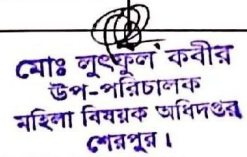 মোঃ লুৎফুল কবীর
উপ-পরিচালক
মহিলা বিষয়ক অধিদপ্তর
শেরপুর।